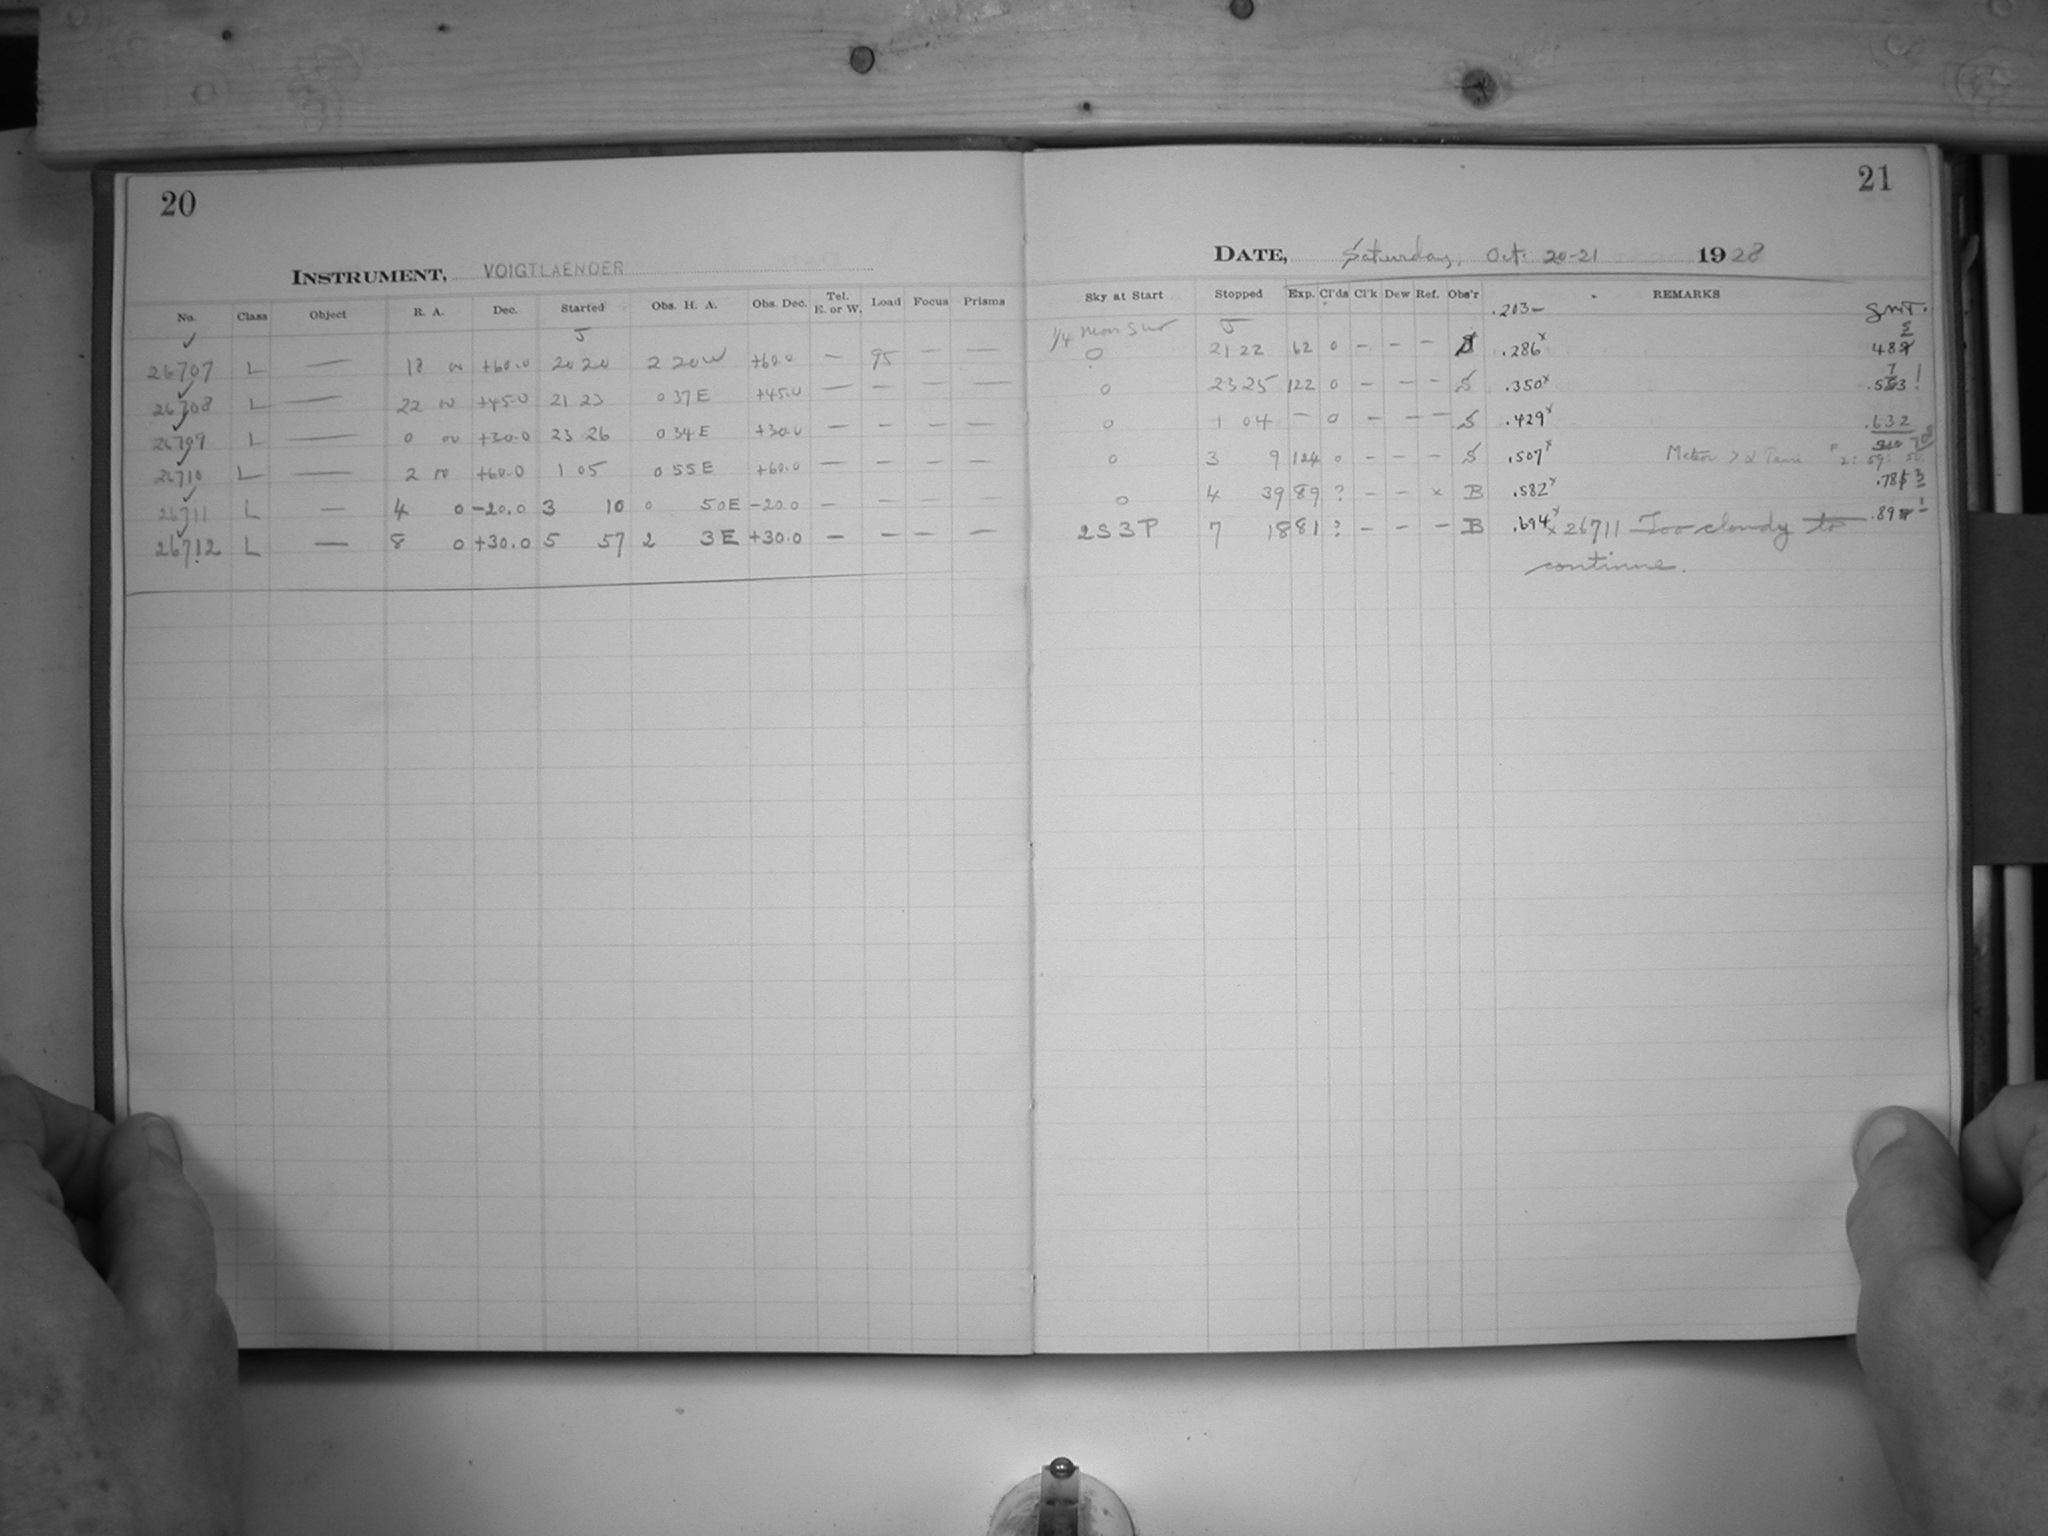 20
INSTRUMENT, VOIGTLAENDER
No. Class Object R. A. Dec. Started Obs. H. A. Obs. Dec. Tel. E. or W. Load Focus Prisms
J
26707 L — 18 00 +60.0 20 20 2 20 W +60.0 — 95 — —
26708 L — 22 00 +45.0 21 23 0 37 E +45.0 — — — —
26709 L — 0 00 +30.0 23 26 0 34 E +30.0 — — — —
26710 L — 2 00 +60.0 1 05 0 55 E +60.0 — — — —
26711 L — 4 0 -20.0 3 10 0 50 E -20.0 — — — —
26712 L — 8 0 +30.0 5 57 2 3 E +30.0 — — — —
21
DATE, Saturday, Oct. 20-21 1928
Sky at Start Stopped Exp. Cl'ds Cl'k Dew Ref. Obs'r REMARKS
.203— G.M.T.
1/4 Moon J
0 21 22 62 0 — — — S .286x
0 23 25 122 0 — — — S .350x
0 1 04 — 0 — — — S .429x .632
0 3 9 124 0 — — — S .507x Meteor > α Tauri 2: 59:
0 4 39 89 ? — — x B .582x
2S3P 7 18 81 ? — — — B .694x x 26711 Too cloudy to
continue.